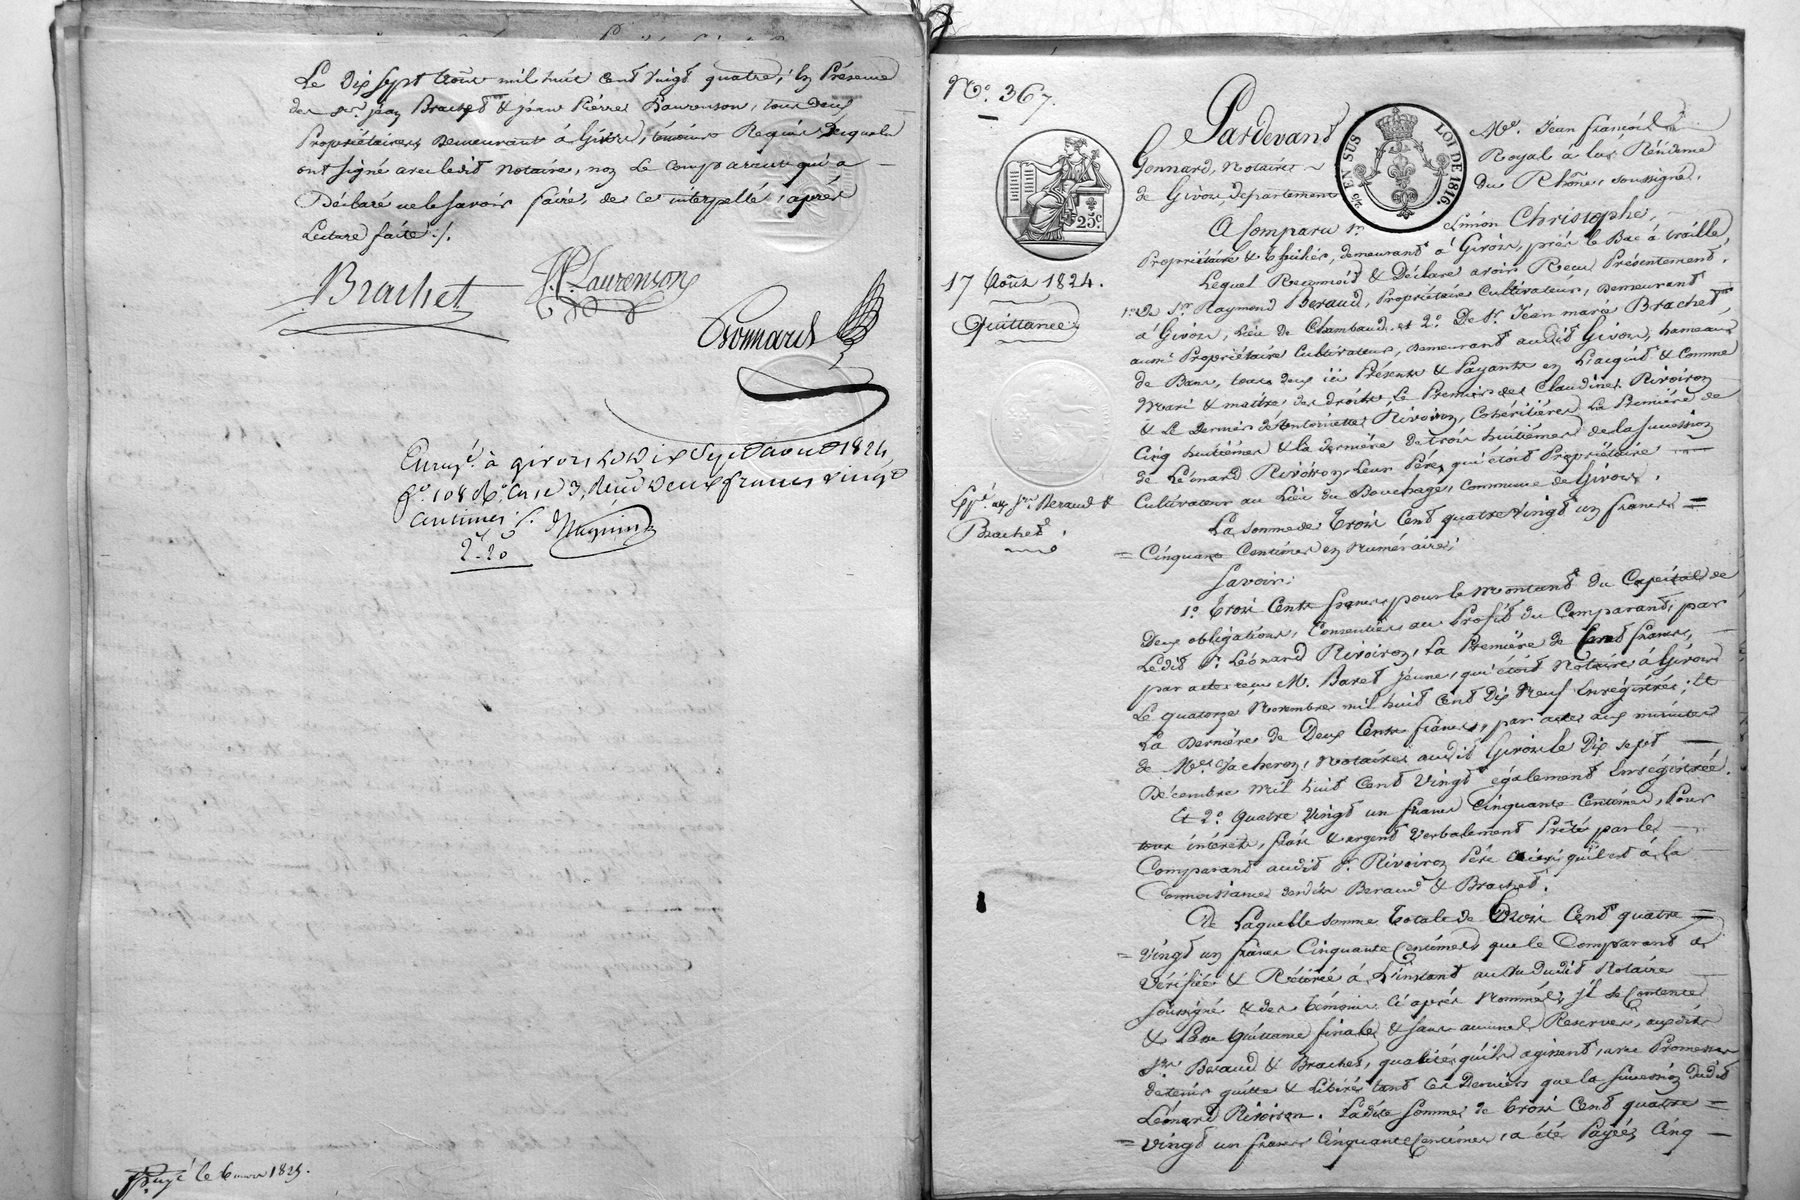 Le Dix Sept Août mil huit cent vingt quatre, En Présence
des Srs. jean Brachet & jean Pierre Laurenson, tous deux
Propriétaires Demeurant à Givors, témoins Requis Lesquels
ont signé avec ledit Notaire, non Le comparant qui a
Déclaré ne le savoir faire, de ce interpellé, après
Lecture faite /.
Brachet
J.P. Laurenson
Gonnard
Enregé. à givors Le Dix Sept aout 1824
fo. 108 Ro. Case 3, Reçu Deux francs vingt
centimes /.
2f. 20
Expé. le 6 1825.
No. 367.
25c.
17 Août 1824.
Quittance
Expé. aux Srs. Beraud &
Brachet
25 EN SUS
LOI DE 1816.
Pardevant Me. Jean françois
Gonnard, Notaire Royal à la Résidence
de Givors département du Rhône, soussigné,
A Comparu Sr. Simon Christophe,
Propriétaire & demeurant à Givors, près le Bac à traille
Lequel Reconnoit & Déclare avoir Reçu Présentement,
1o. de Sr. Raymond Beraud, Propriétaire Cultivateur, Demeurant
à Givors, Lieu de Chambaud, et 2o. De Sr. Jean marie Brachet,
aussi Propriétaire Cultivateur, Demeurant audit Givors, hameau
de Bans, tous deux ici Présents & Payants en L'acquit & Comme
Mari & maître des droits, Le Premier de Claudine Rivoiron
& Le Dernier d'Antoinette Rivoiron, Cohéritières La Première de
Cinq huitièmes & la dernière de trois huitièmes de la succession
de Léonard Rivoiron, Leur Père, qui étoit Propriétaire
Cultivateur au Lieu du Bouchage, Commune de Givors.
La Somme de Trois Cent quatre Vingt un francs =
= Cinquante Centimes en Numéraire;
Savoir:
1o. Trois Cents francs, pour le Montant du Capital de
Deux obligations, Consenties au Profit du Comparant, par
Ledit Sr. Léonard Rivoiron, La Première de Cent francs,
par acte reçu Me. Baret Jeune, qui étoit Notaire à Givors
Le quatorze Novembre mil huit Cent Dix Neuf Enrégistré; Et
La Dernière de Deux Cents francs, par acte aux minutes
de Me. Notaire audit Givors le Dix sept
Décembre mil huit Cent Vingt également Enrégistré.
Et 2o. Quatre Vingt un francs Cinquante Centimes, Pour
tous intérêts, frais & argent Verbalement Prêté par le
Comparant audit Sr. Rivoiron Père Ainsi qu'il est à la
Connoissance desdits Beraud & Brachet.
De Laquelle somme totale de Trois Cent quatre =
= Vingt un francs Cinquante Centimes, que le Comparant a
Vérifiée & Retirée à L'instant au Vu dudit Notaire
Soussigné & des témoins Ci après Nommés, il se Contente
& Passe Quittance finale & sans aucune Reserve, auxdits
Srs. Beraud & Brachet, qualités qu'ils agissent, avec Promesse
de tenir quitte & Libérés tant Ces Derniers que la Succession dudit
Léonard Rivoiron. Ladite somme de Trois Cent quatre =
= Vingt un francs Cinquante Centimes, a été Payée, Cinq